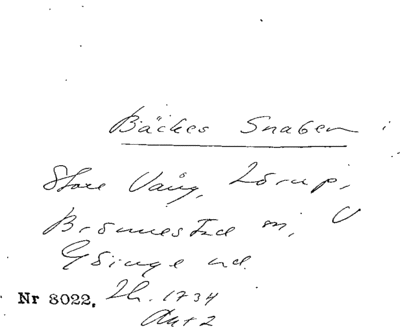 Bäckes Snaben i
Store Vång, Lörup,
Brönnestad sn, V
Göinge hd.
Nr 8022. Lh. 1734
Akt 2